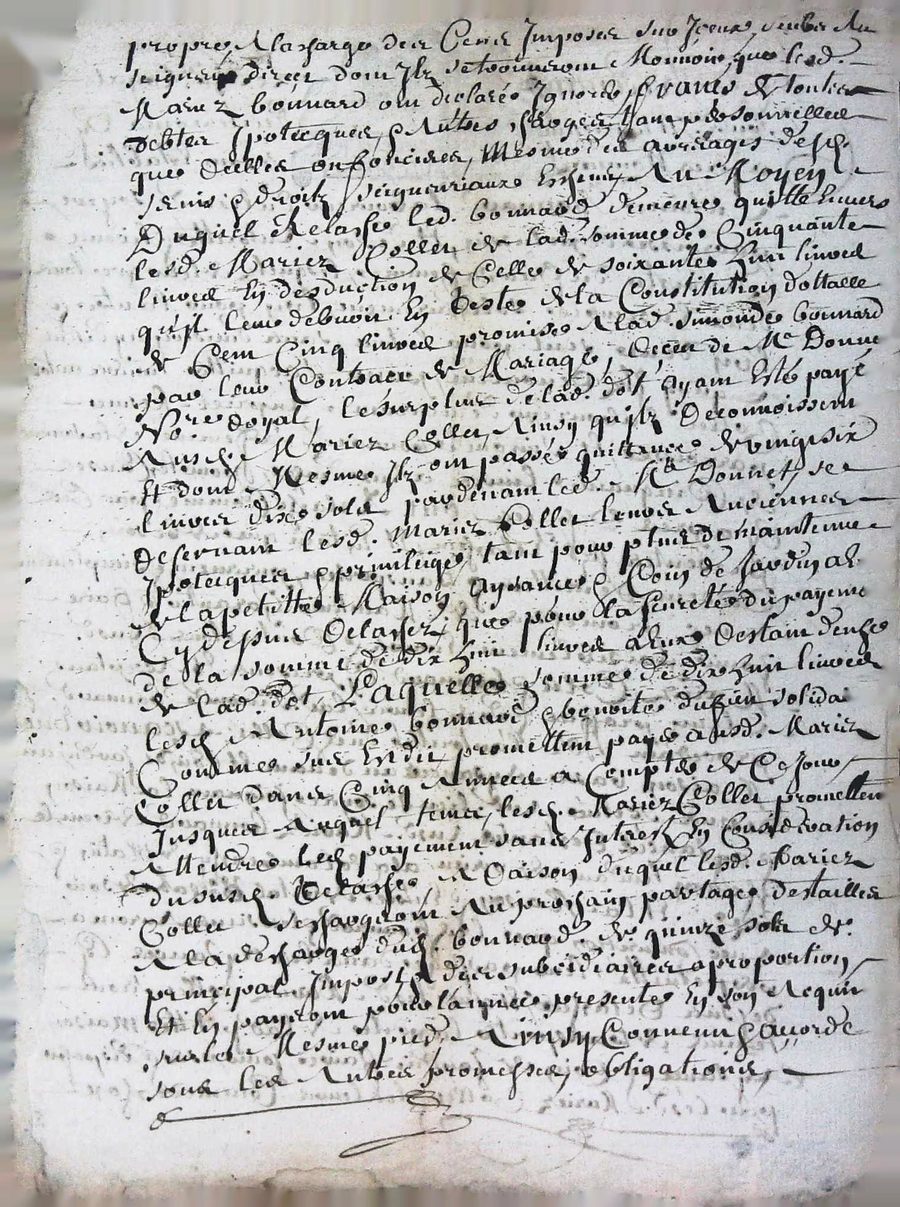 propre, A la charge des Cens Imposés sur Iceux deubs Au
seigneur direct dont Ilz se trouveront Mouvoir, que lesd.
Mariez bonnard ont declaré Ignorer, francs de toutes
debtes Ipotecques, & Autres charges, tant personnelles
que reelles ou foncieres, Mesme des arrerages desd.
servis & droitz seigneuriaux Au Moyen
Duquel Relaschė led. bonnard demeure quitte Envers
lesd. Mariez Collet de lad. somme de Cinquante
livres En desduction de Celle de soixante huit livres
qu'il leur debvoit En reste de la Constitution dottalle
de Cent Cinq livres promise A lad. simonde bonnard
par leur Contract de Mariage, receu de Me Donnet
No.re Royal, le surplus de lad. dot ayant Esté payé
Ausd. Mariez Collet, Ainsy qu'ilz Reconnoissent
Et dont Mesme Ilz ont passé quittance de vingt six
livres dix sols pardevant led. Me Donnet, se
reservant lesd. Mariez Collet leurs Anciennes
Ipotecques & privilege, tant pour plus de maintenue
de la petitte Maison, aysances, & Coin de Jardin al
Cy depus Relaschez, que pour la seureté du payement
de la somme de dix huit livres a Eux restant deuhe
de lad. dot Laquelle somme de dix huit livres
lesd. Antoine bonnard & benoite solidai
Comme sus Est dit promettent payer ausd. Mariez
Collet dans Cinq Années a Compter de Ce Jour,
Jusques Auquel temps, lesd. Mariez Collet promettent
Attendre led. payement sans Interest En Consideration
du susd. Relasche, A Raison duquel lesd. Mariez
Collet se chargeront Au prochain partage des tailles
A la descharge dud. bonnard de quinze sols de
principal Impost & des subsidiaires a proportion
Et En payeront pour l'année presente En son Acquit
sur le Mesme pied, Ainsy Convenu & accordé
sous les Autres promesses, obligations,